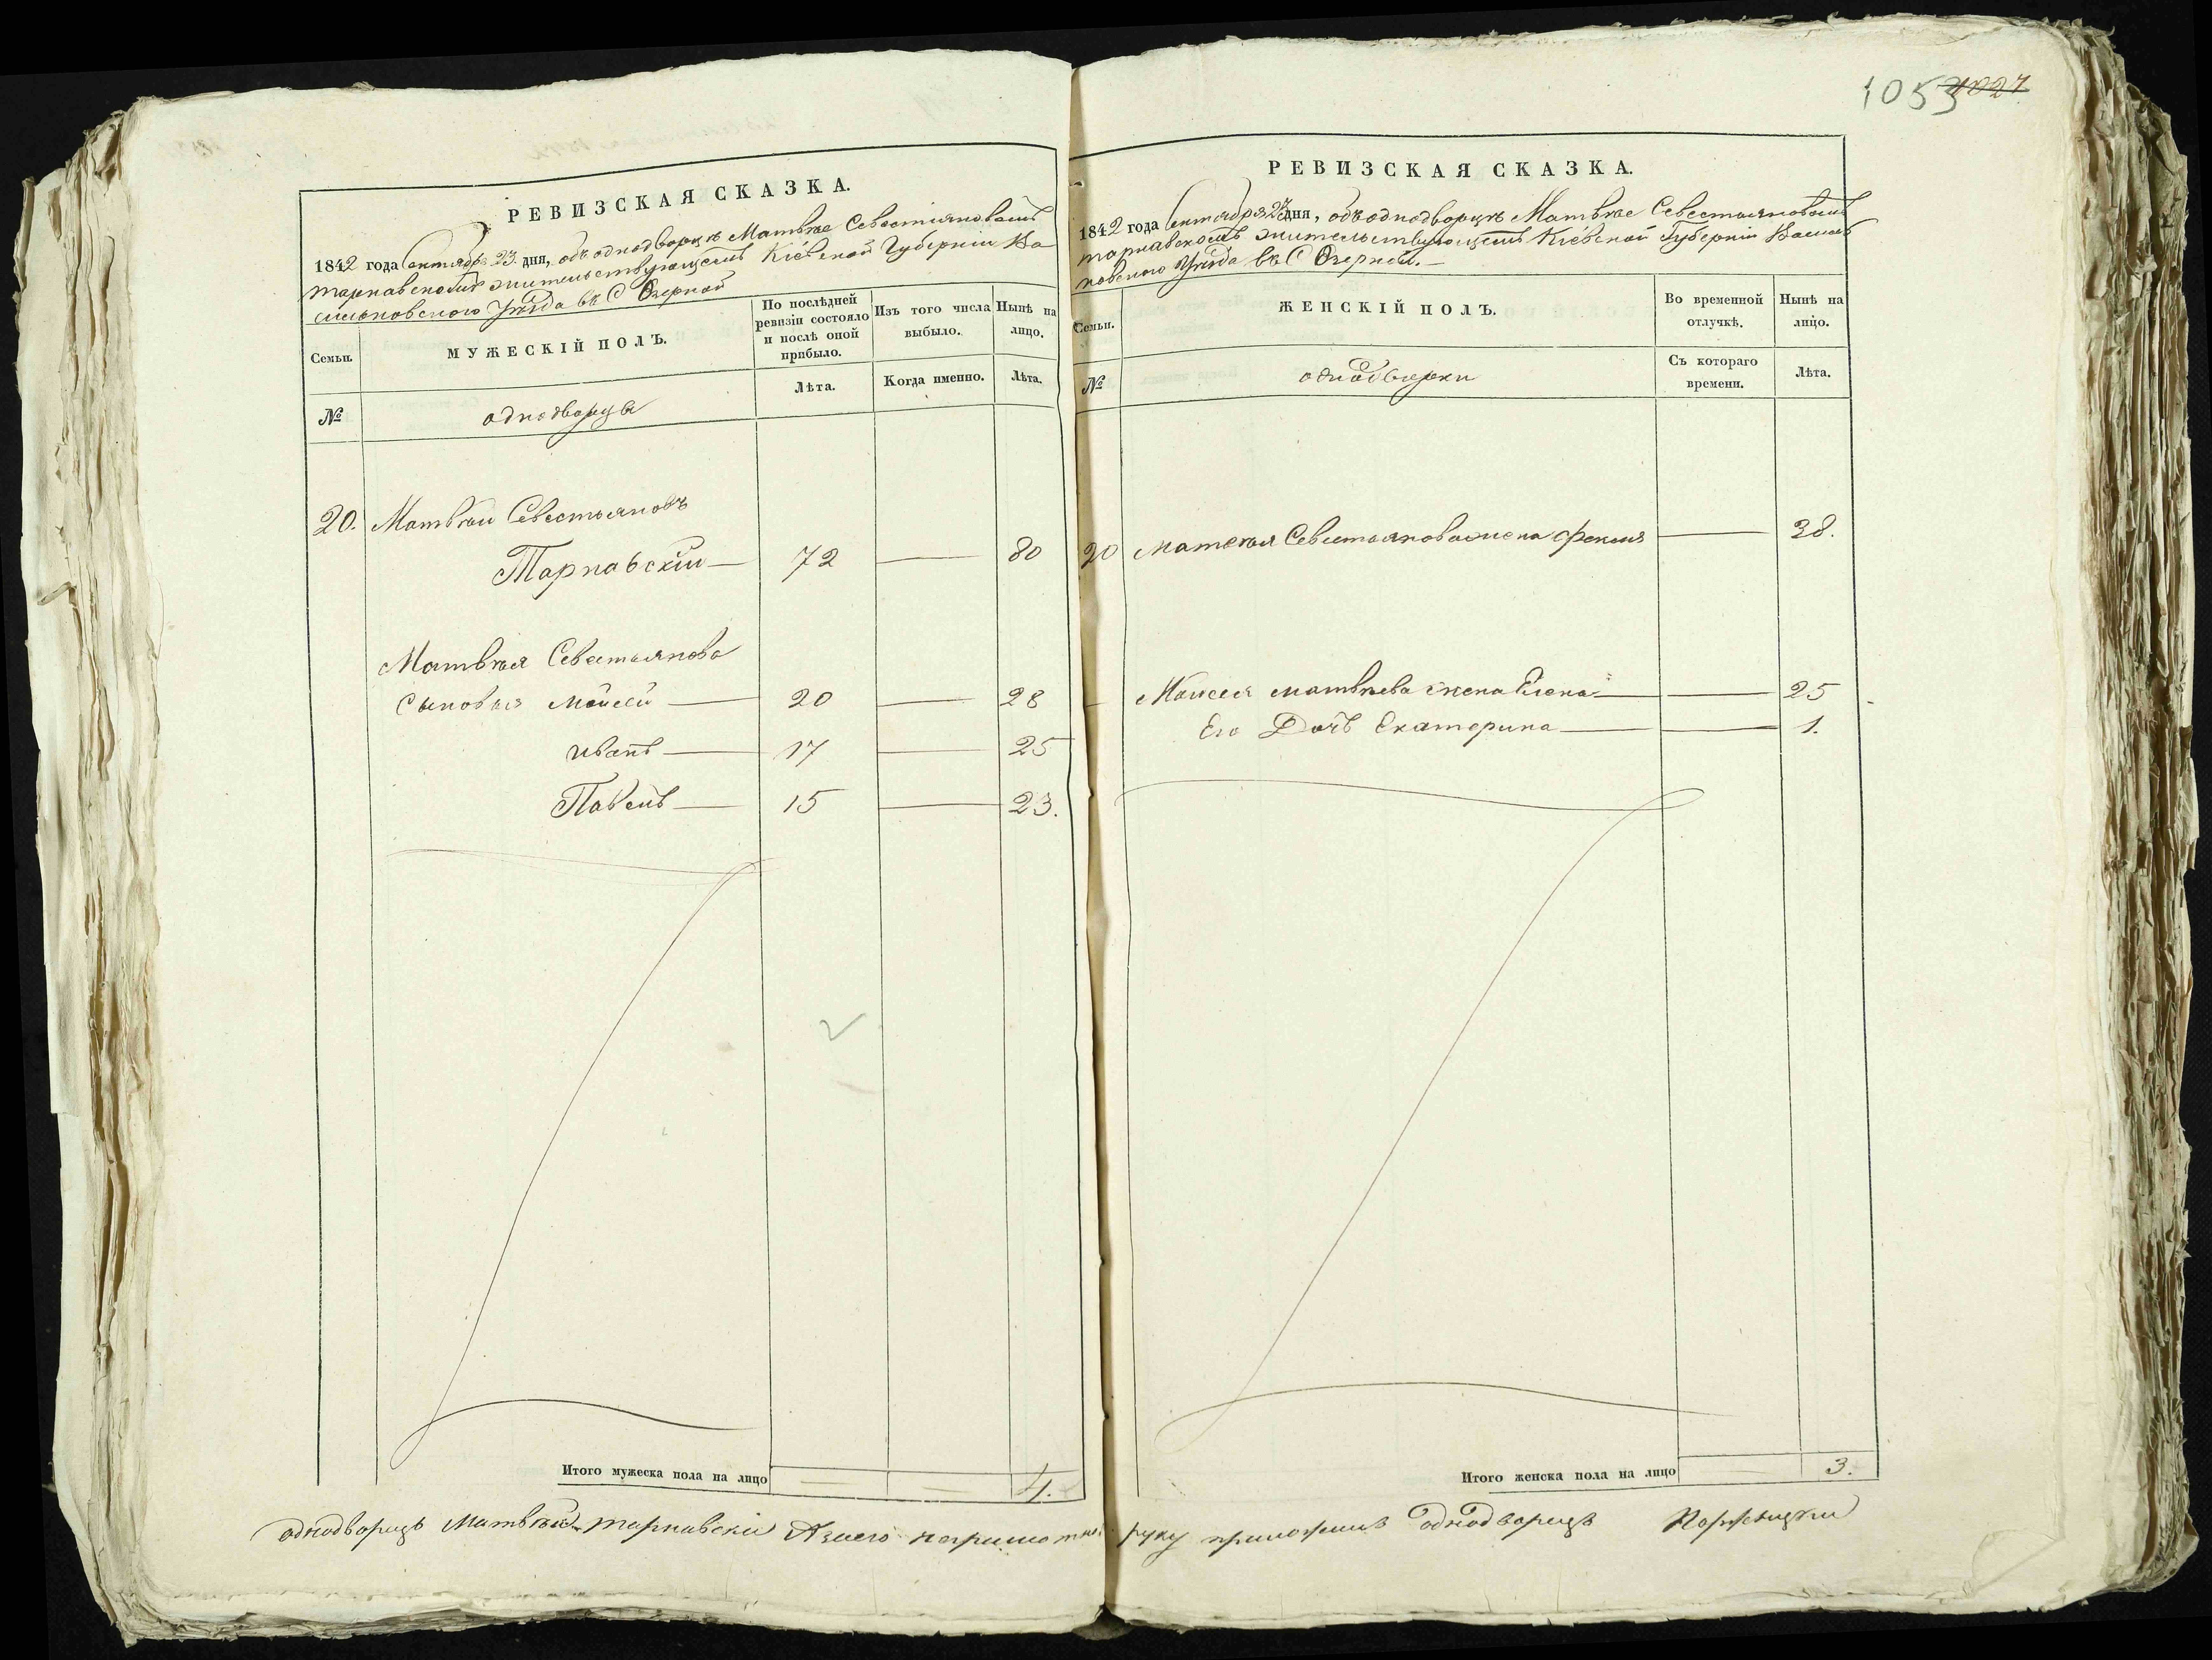 1053 1027
РЕВИЗСКАЯ СКАЗКА.
1842 года Сентября 23 дня, объ однодворцѣ Матвѣе Севестіяновомъ
Тарнавскомъ жительствующемъ Кіевской Губерніи Ва
сильковскаго Уѣзда въ С Озерной
Семьи. МУЖЕСКІЙ ПОЛЪ. По послѣдней ревизіи состояло и послѣ оной прибыло. Изъ того числа выбыло. Нынѣ на лицо.
№ однодворцы Лѣта. Когда именно. Лѣта.
20. Матвѣй Севестьяновъ
Тарнавскій — 72 — 80
Матвѣя Севестьянова
Сыновья Мойсей — 20 — 28
Иванъ — 17 — 25
Павелъ — 15 — 23.
Итого мужеска пола на лицо — — 4.
РЕВИЗСКАЯ СКАЗКА.
1842 года Сентября 23 дня, объ однодворцѣ Матвѣе Севестьяновомъ
Тарнавскомъ жительствующемъ Кіевской Губерніи Василь
ковскаго Уѣзда въ С Озерной. —
Семьи. ЖЕНСКІЙ ПОЛЪ. Во временной отлучкѣ. Нынѣ на лицо.
№ однодворки Съ котораго времени. Лѣта.
20 Матвѣя Севестьянова жена Фекла — 38.
Мойсея Матвѣева жена Елена — — 25
Его Дочь Екатерина — — 1.
Итого женска пола на лицо — 3.
однодворецъ Матвѣй Тарнавскій А за него неграмотнаго руку приложилъ однодворецъ